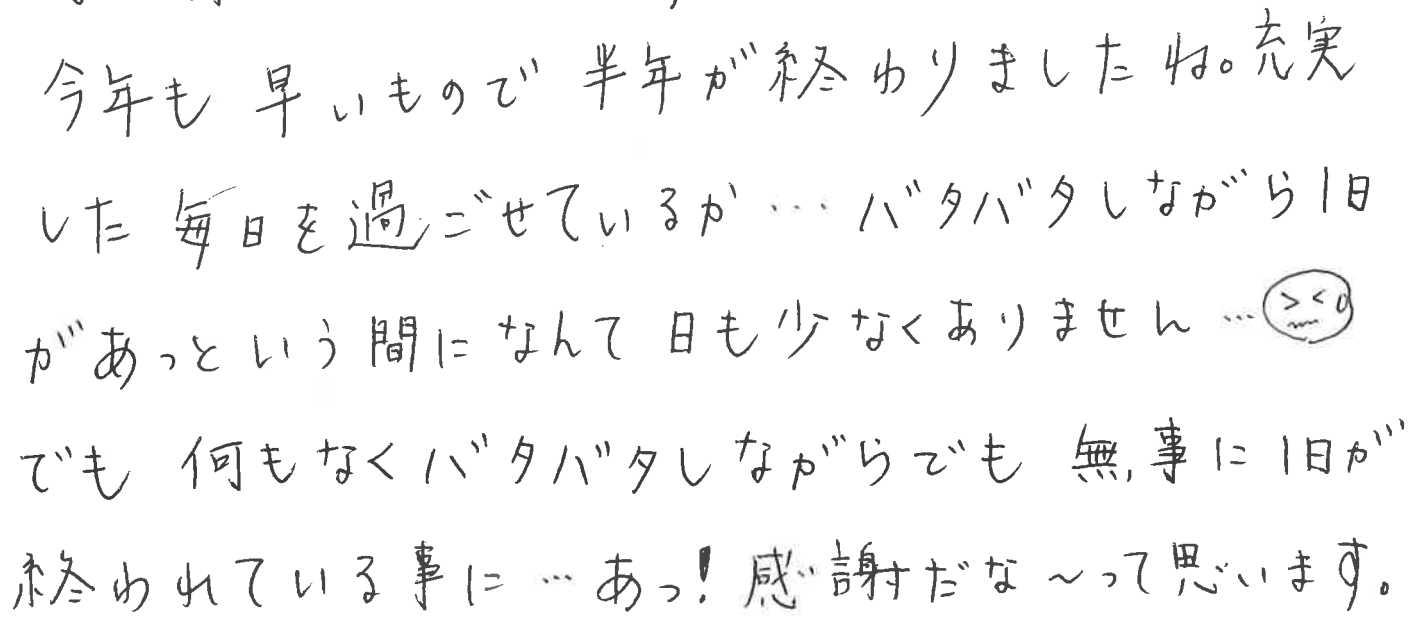 今年も早いもので半年が終わりましたね。充実
した毎日を過ごせているか…バタバタしながら1日
があっという間になんて日も少なくありません…
でも何もなくバタバタしながらでも無事に1日が
終われている事に…あっ!感謝だな~って思います。